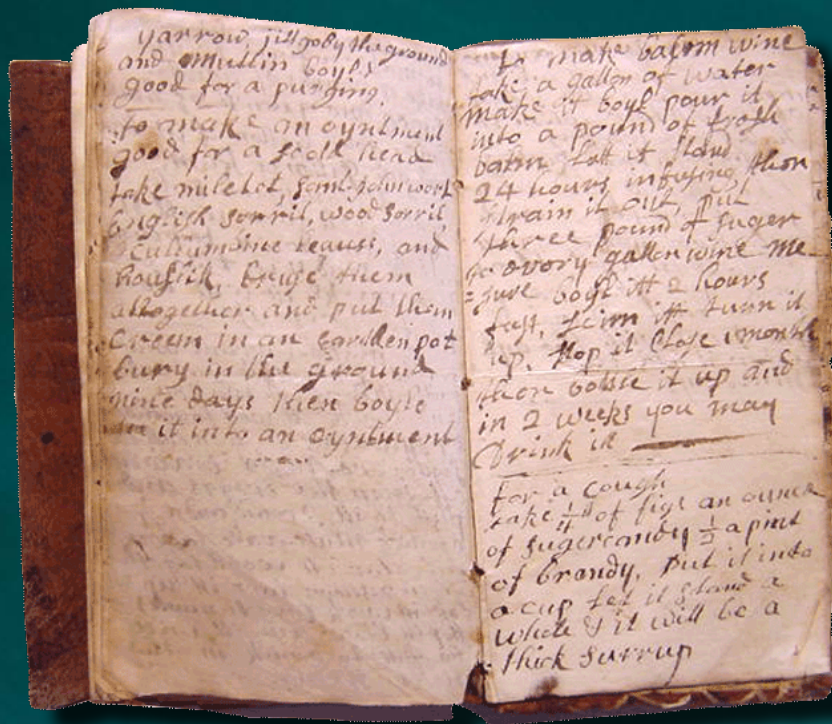 yarrow, jill goby the ground
and mullin boyld
good for a purging.
to make an oyntment
good for a scold head
take milelot, saint Johnswort
English sorril, wood sorril
cullumbine leaves, and
housleik, bruse them
altogether and put them
Creem in an earthen pot
bury in the ground
nine days then boyle
it into an oyntment
To make balm wine
take a gallon of water
make it boyl pour it
into a pound of fresh
balm lett it stand
24 hours infusing then
strain it out, put
three pound of suger
to every gallon wine me
=sure boyl itt 2 hours
fast, scim itt turn it
up, stop it Close 1 month
then bottle it up and
in 2 weeks you may
Drink it
for a cough
take 1/4 of figs an ounce
of sugercandy 1/2 a pint
of brandy, put it into
a cup Let it stand a
while & it will be a
thick surrup